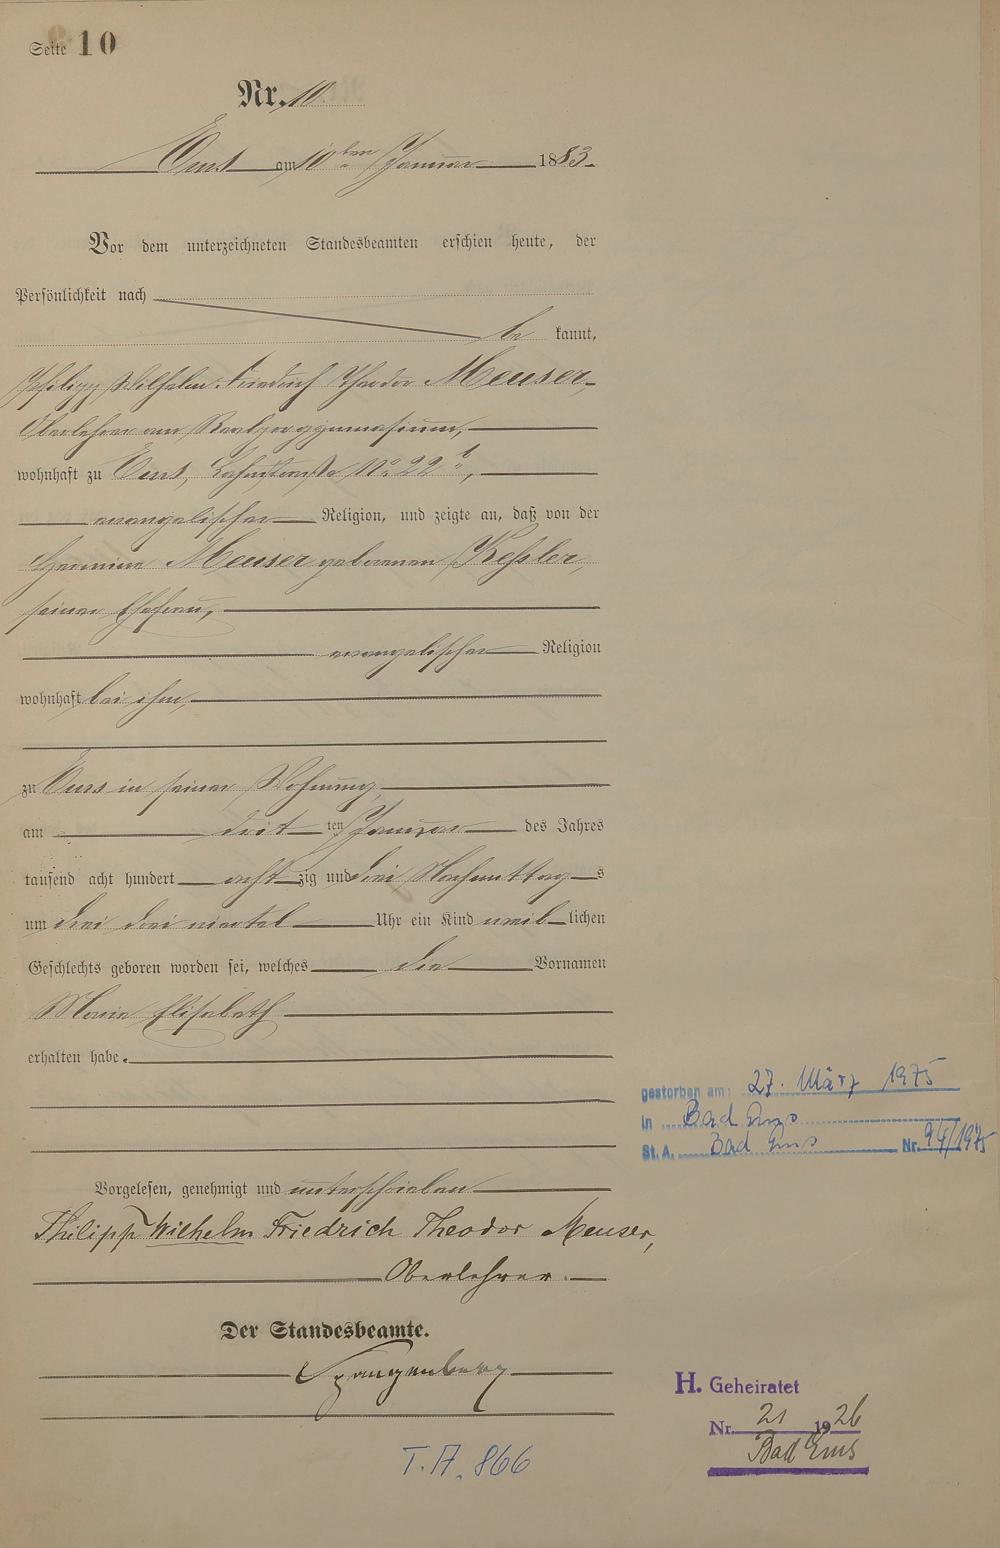 Seite 10
Nr. 10.
Ems am 10ten Januar 1883.
Vor dem unterzeichneten Standesbeamten erschien heute, der
Persönlichkeit nach
be kannt,
Philipp Wilhelm Friedrich Theodor Meuser,
Oberlehrer am Realprogymnasium,
wohnhaft zu Ems, Lahnstraße No 22 b,
evangelischer Religion, und zeigte an, daß von der
Hermine Meuser geborenen Keßler,
seiner Ehefrau,
evangelischer Religion
wohnhaft bei ihm,
zu Ems in seiner Wohnung,
am dritten Januar des Jahres
tausend acht hundert achtzig und drei Nachmittags
um drei drei viertel Uhr ein Kind weiblichen
Geschlechts geboren worden sei, welches die Vornamen
Marie Elisabeth
erhalten habe.
gestorben am: 27. März 1975
in Bad Ems
St. A. Bad Ems Nr. 94/1975
Vorgelesen, genehmigt und unterschrieben
Philipp Wilhelm Friedrich Theodor Meuser,
Oberlehrer.
Der Standesbeamte.
Spangenberg
H. Geheiratet
Nr. 21 1926
Bad Ems
T.A. 866